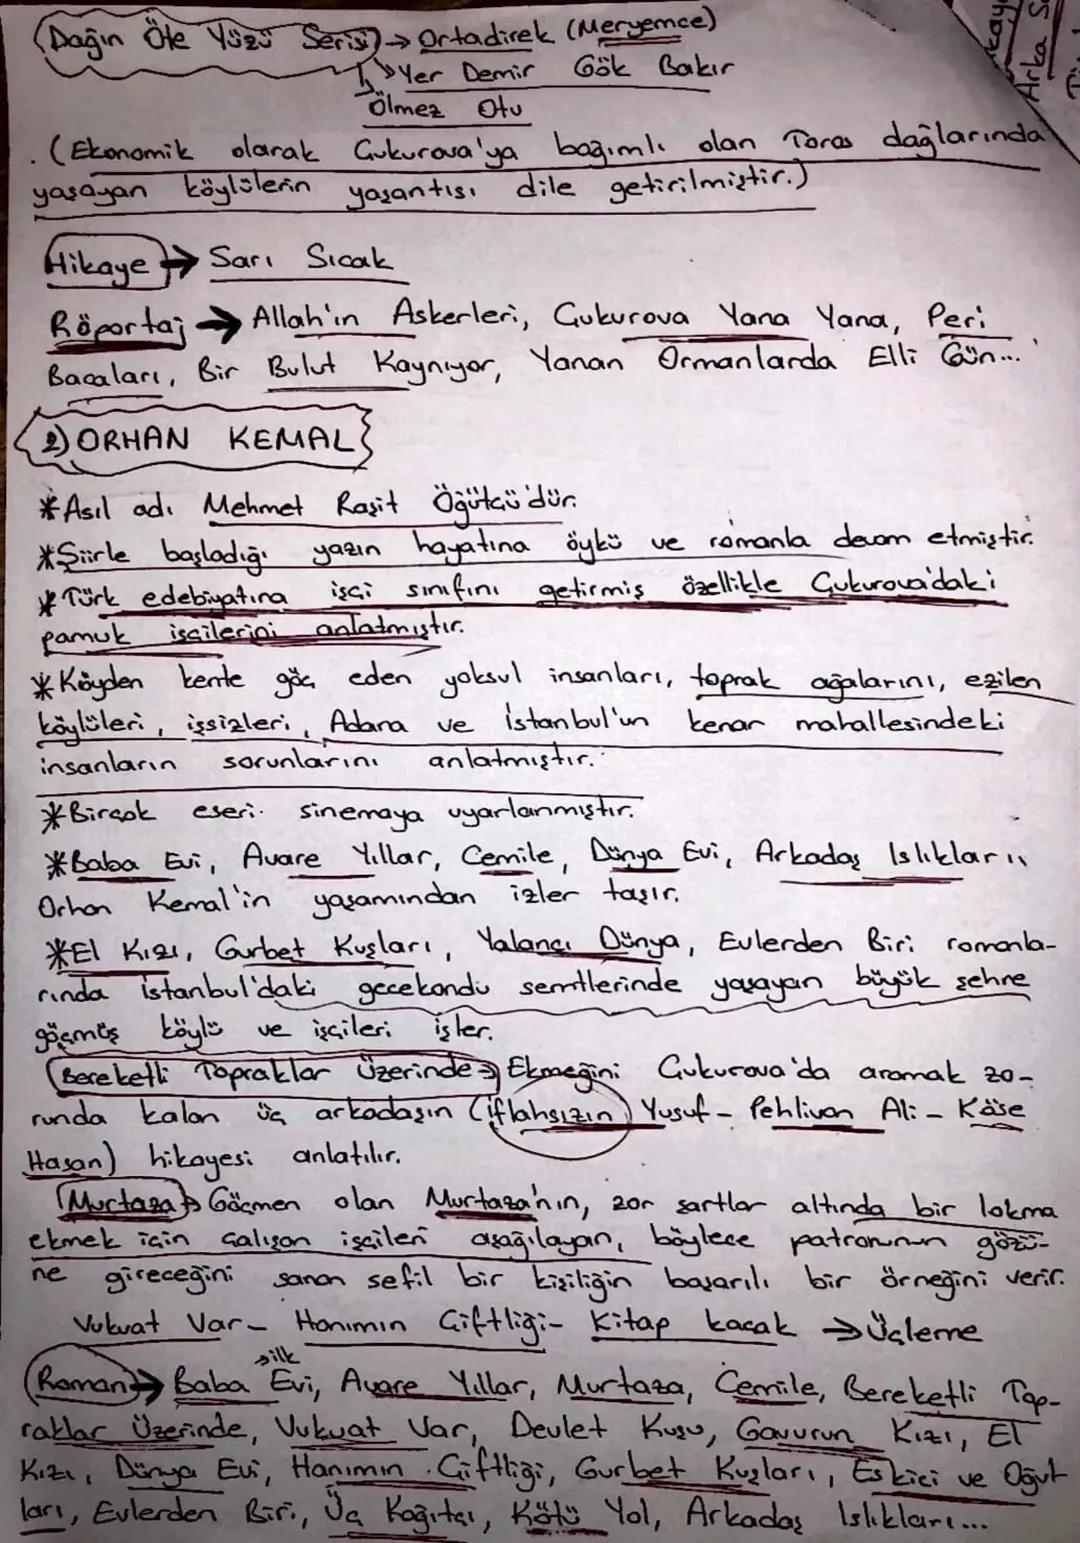 (Dağın Öte Yüzü Serisi) → Ortadirek (Meryemce)
→ Yer Demir Gök Bakır
Ölmez Otu
. (Ekonomik olarak Çukurova'ya bağımlı olan Toros dağlarında
yaşayan köylülerin yaşantısı dile getirilmiştir.)
Hikaye → Sarı Sıcak
Röportaj → Allah'ın Askerleri, Çukurova Yana Yana, Peri
Bacaları, Bir Bulut Kaynıyor, Yanan Ormanlarda Elli Gün...
2) ORHAN KEMAL
* Asıl adı Mehmet Raşit Öğütçü'dür.
* Şiirle başladığı yazın hayatına öykü ve romanla devam etmiştir.
* Türk edebiyatına işçi sınıfını getirmiş özellikle Çukurova'daki
pamuk işçilerini anlatmıştır.
* Köyden kente göç eden yoksul insanları, toprak ağalarını, ezilen
köylüleri, işsizleri, Adana ve İstanbul'un kenar mahallesindeki
insanların sorunlarını anlatmıştır.
* Birçok eseri sinemaya uyarlanmıştır.
* Baba Evi, Avare Yıllar, Cemile, Dünya Evi, Arkadaş Islıkları,
Orhan Kemal'in yaşamından izler taşır.
* El Kızı, Gurbet Kuşları, Yalancı Dünya, Evlerden Biri romanla-
rında İstanbul'daki gecekondu semtlerinde yaşayan büyük şehre
göçmüş köylü ve işçileri işler.
Bereketli Topraklar Üzerinde → Ekmeğini Çukurova'da aramak zo-
runda kalan üç arkadaşın (İflahsızın Yusuf - Pehlivan Ali - Köse
Hasan) hikayesi anlatılır.
Murtaza → Göçmen olan Murtaza'nın, zor şartlar altında bir lokma
ekmek için çalışan işçileri aşağılayan, böylece patronunun gözü-
ne gireceğini sanan sefil bir kişiliğin başarılı bir örneğini verir.
Vukuat Var - Hanımın Çiftliği - Kitap kaçak → Üçleme
→ ilk
Roman → Baba Evi, Avare Yıllar, Murtaza, Cemile, Bereketli Top-
raklar Üzerinde, Vukuat Var, Devlet Kuşu, Gavurun Kızı, El
Kızı, Dünya Evi, Hanımın Çiftliği, Gurbet Kuşları, Eskici ve Oğul-
ları, Evlerden Biri, Üç Kağıtçı, Kötü Yol, Arkadaş Islıkları...